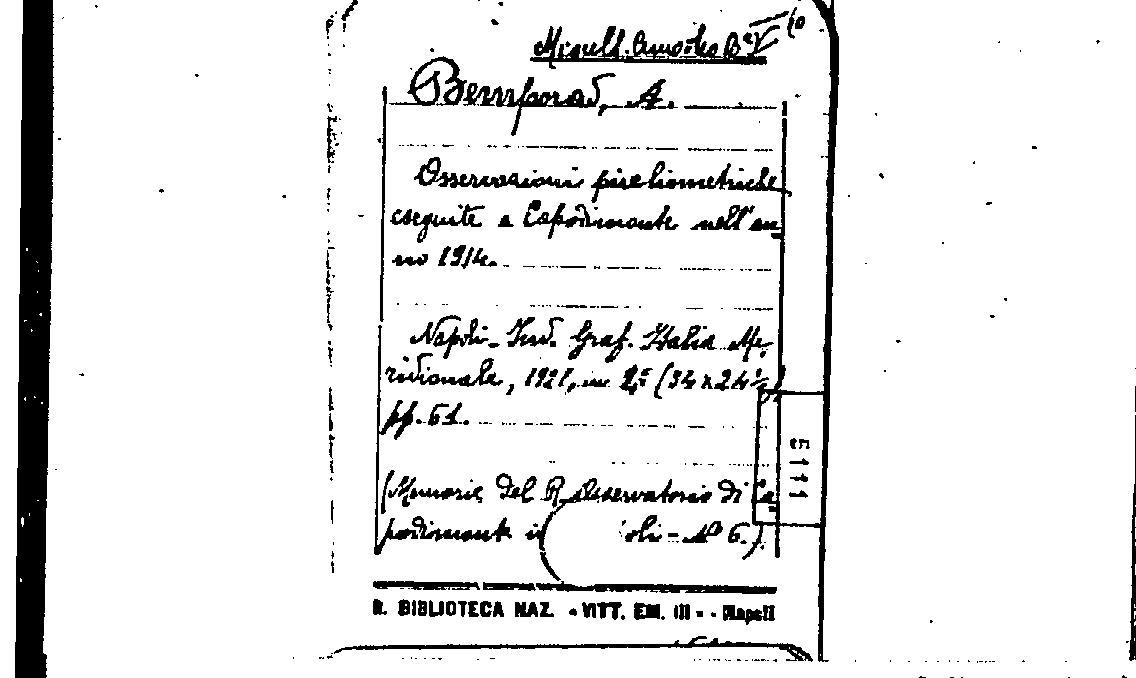 Miscell. Busta B^a V 10
Bemporad, A.
Osservazioni pireliometriche
eseguite a Capodimonte nell'an
no 1914.
Napoli - Ind. Graf. Italia Me,
ridionale, 1921, in 4° (34 x 24½)
pp. 51.
(Memorie del R. Osservatorio di Ca
podimonte i oli - N° 6.)
5111
R. BIBLIOTECA NAZ. «VITT. EM. III» - Napoli